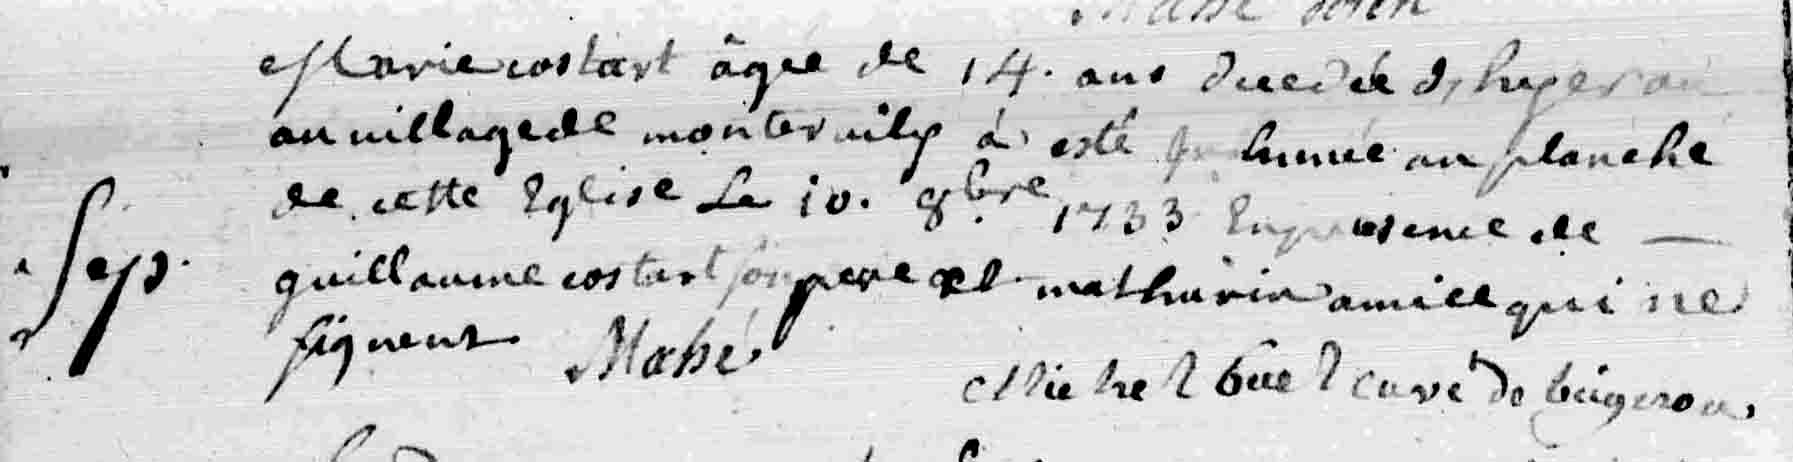 Marie costart âgée de 14. ans decedée d'hyer au
au village de montervily à esté inhumée au planché
de cette Eglise Le 10. 8bre 1733 En presence de
guillaume costart son pere et mathurin amice qui ne
signent Mahé
Michel buel curé de beigeron.
Sep.